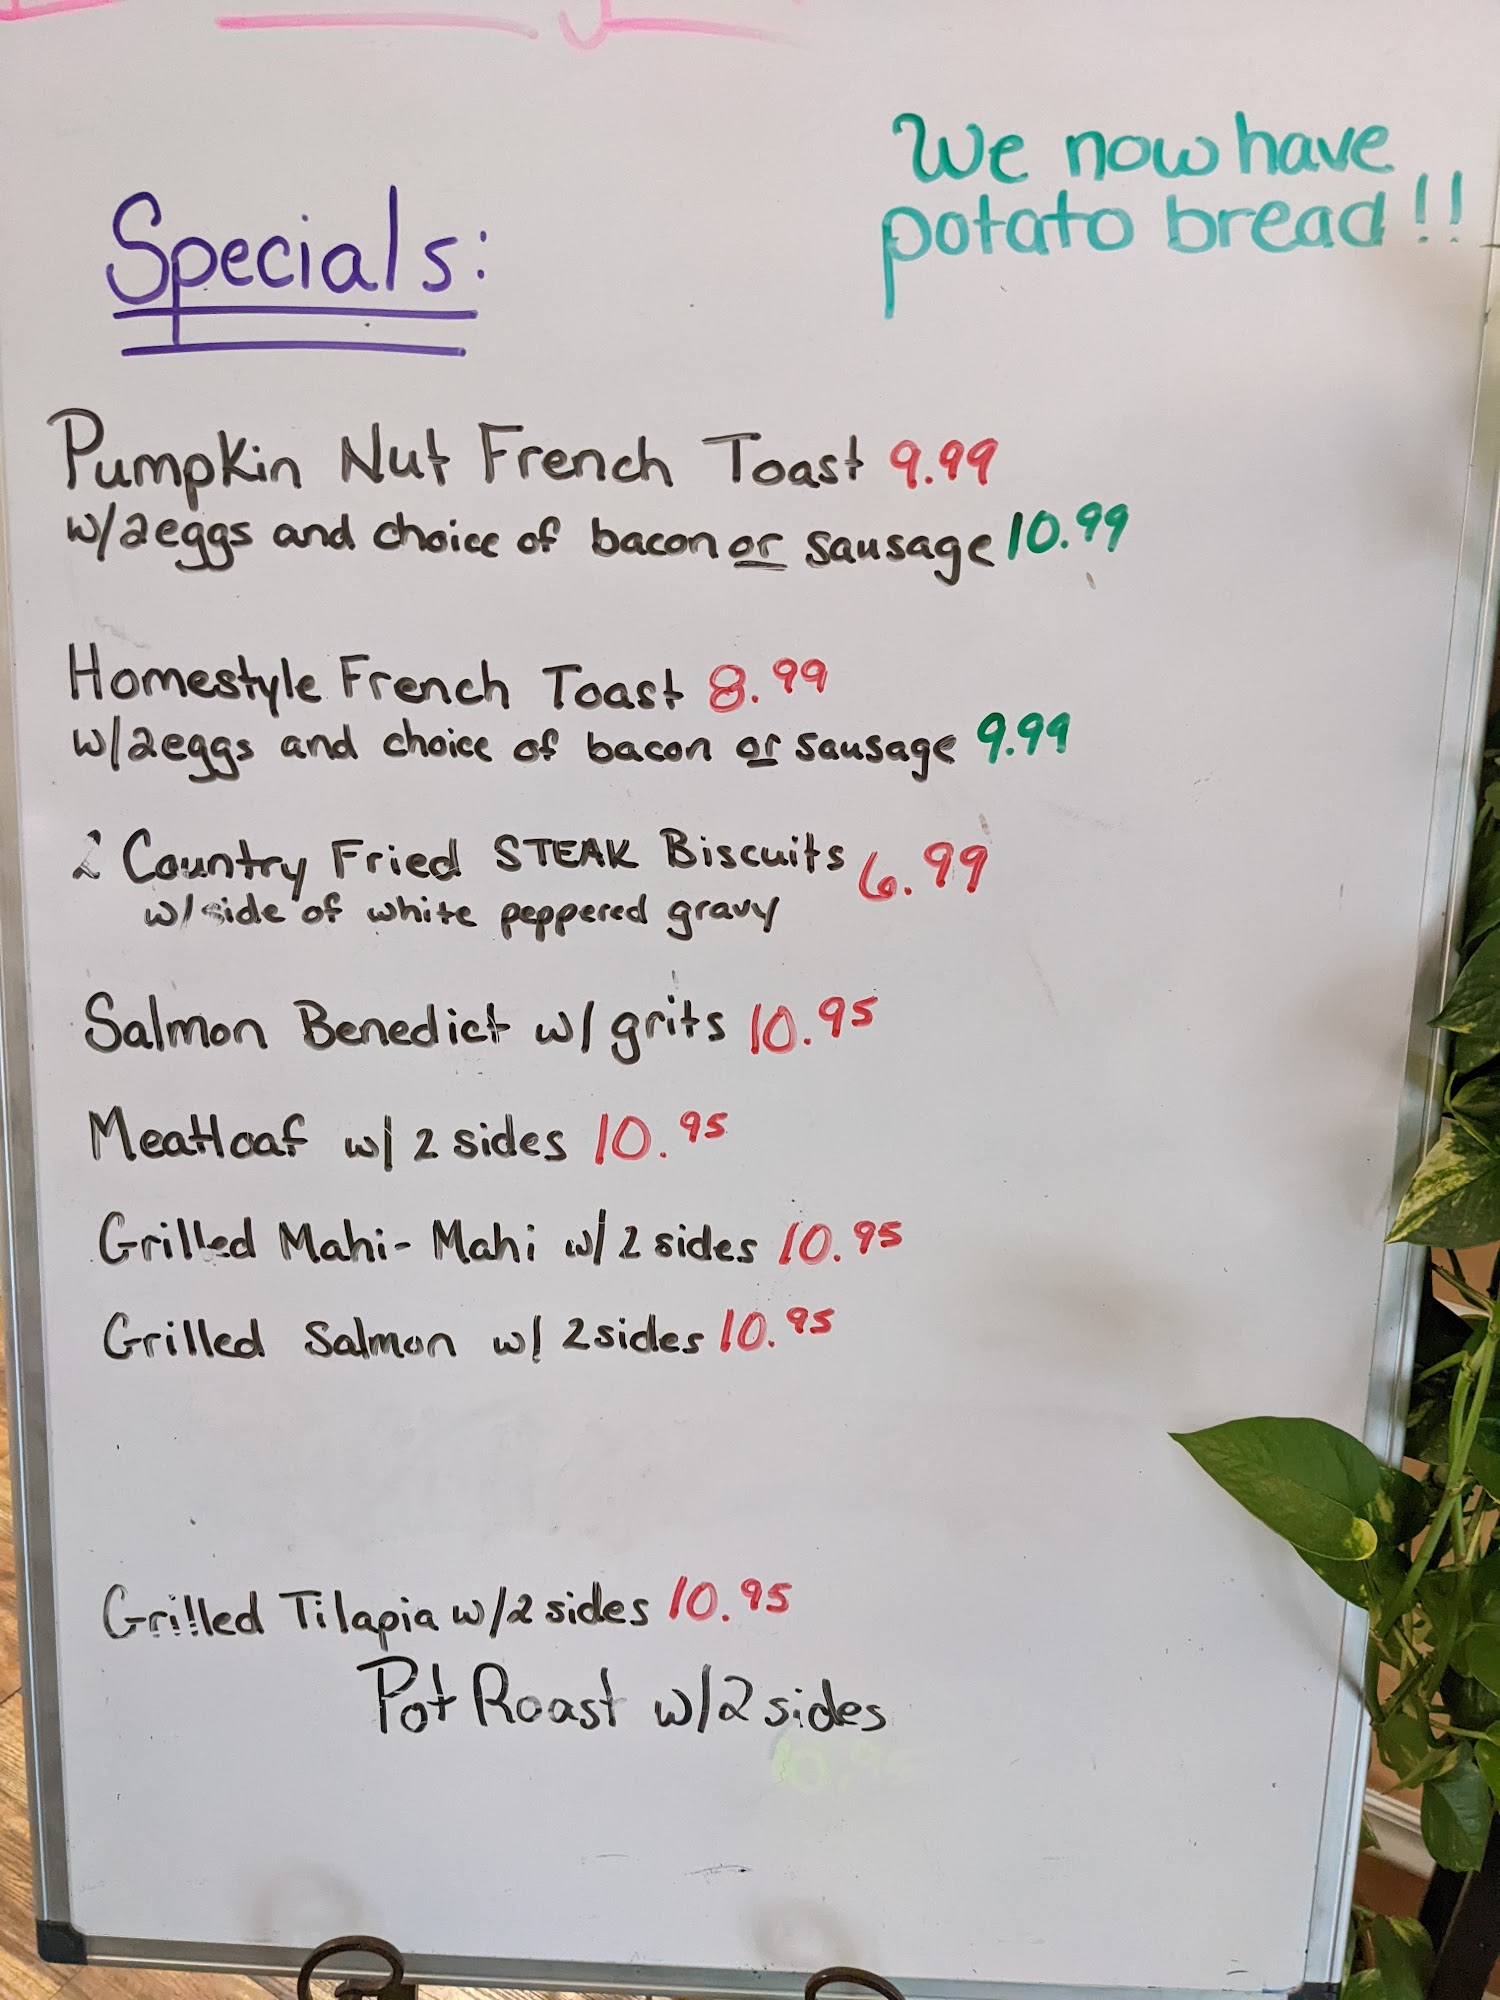 We now have
potato bread!!
Specials:
Pumpkin Nut French Toast 9.99
w/2eggs and choice of bacon or sausage 10.99
Homestyle French Toast 8.99
w/2eggs and choice of bacon or sausage 9.99
2 Country Fried STEAK Biscuits 6.99
w/side of white peppered gravy
Salmon Benedict w/ grits 10.95
Meatloaf w/ 2 sides 10.95
Grilled Mahi-Mahi w/ 2 sides 10.95
Grilled Salmon w/ 2 sides 10.95
Grilled Tilapia w/2 sides 10.95
Pot Roast w/2 sides
10.95